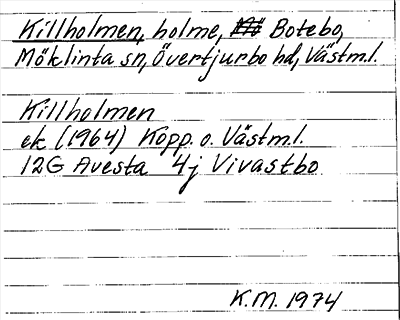 Killholmen, holme, Botebo,
Möklinta sn, Övertjurbo hd, Västm.l.
Killholmen
ek (1964) Kopp. o. Västm.l.
12G Avesta 4j Vivastbo
K.M. 1974